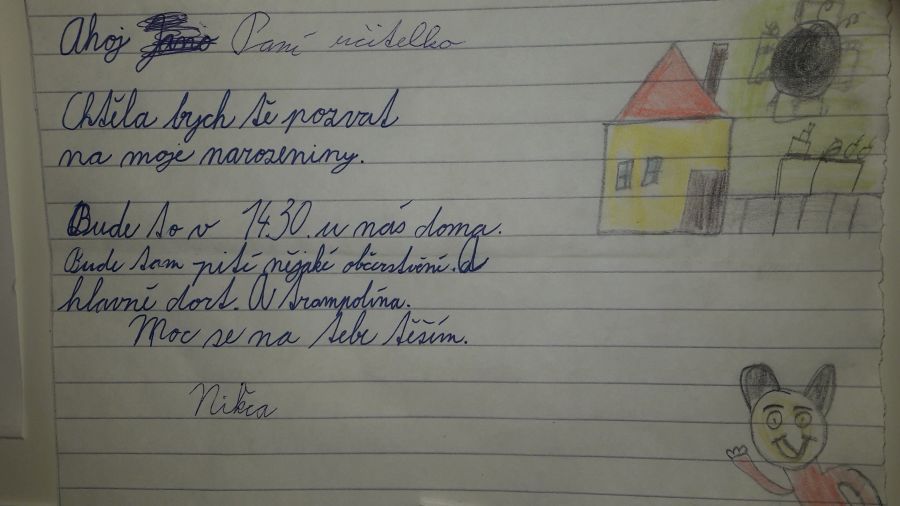 Ahoj Paní učitelko
Chtěla bych tě pozvat
na moje narozeniny.
Bude to v 14.30 u nás doma.
Bude tam pití nějaké občerstvění. A
hlavně dort. A trampolína.
Moc se na tebe těším.
Nikča